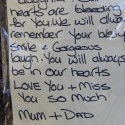 hearts are bleeding
for you. We will always
remember your lovely
smile + Gorgeous
laugh. You will always
be in our hearts
LOVE You + Miss
You so much
Mum + DAD